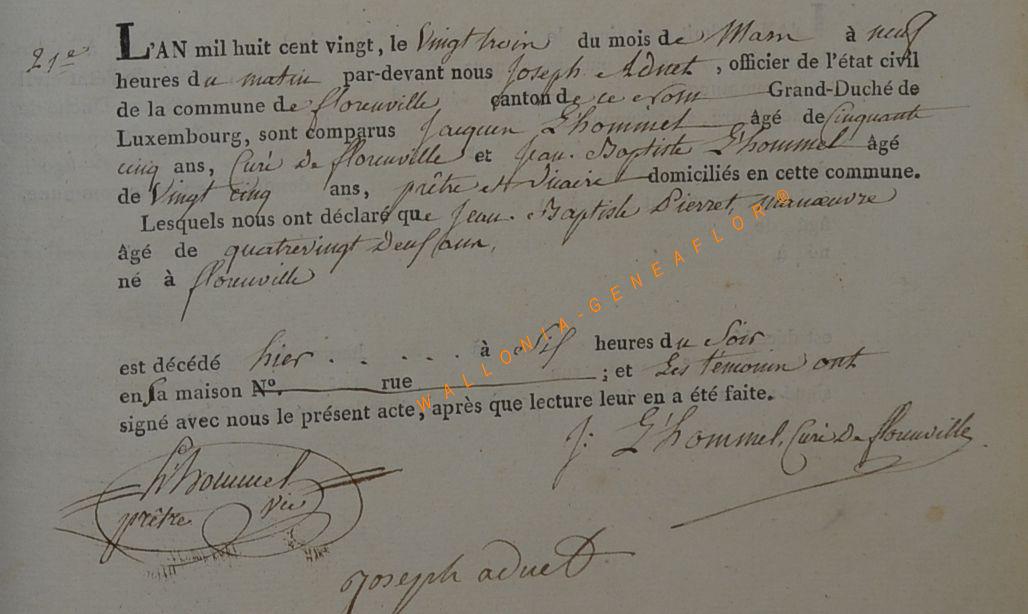 21e
L'AN mil huit cent vingt, le Vingt trois du mois de Mars à neuf
heures du matin par-devant nous Joseph Adnet, officier de l'état civil
de la commune de florenville canton de ce nom Grand-Duché de
Luxembourg, sont comparus Jacques L'hommel âgé de Cinquante
cinq ans, Curé De florenville et Jean-Baptiste L'hommel âgé
de Vingt cinq ans, prêtre et Vicaire domiciliés en cette commune.
Lesquels nous ont déclaré que Jean-Baptiste Pierret, manœuvre
âgé de quatrevingt Deux ans,
né à florenville
est décédé hier . . . . . à Six heures du Soir
en sa maison No. rue ; et Les témoins ont
signé avec nous le présent acte, après que lecture leur en a été faite.
J: L'hommel, Curé De florenville
L'hommel
prêtre vic
joseph adnet
WALLONIA-GENEAFLOR®